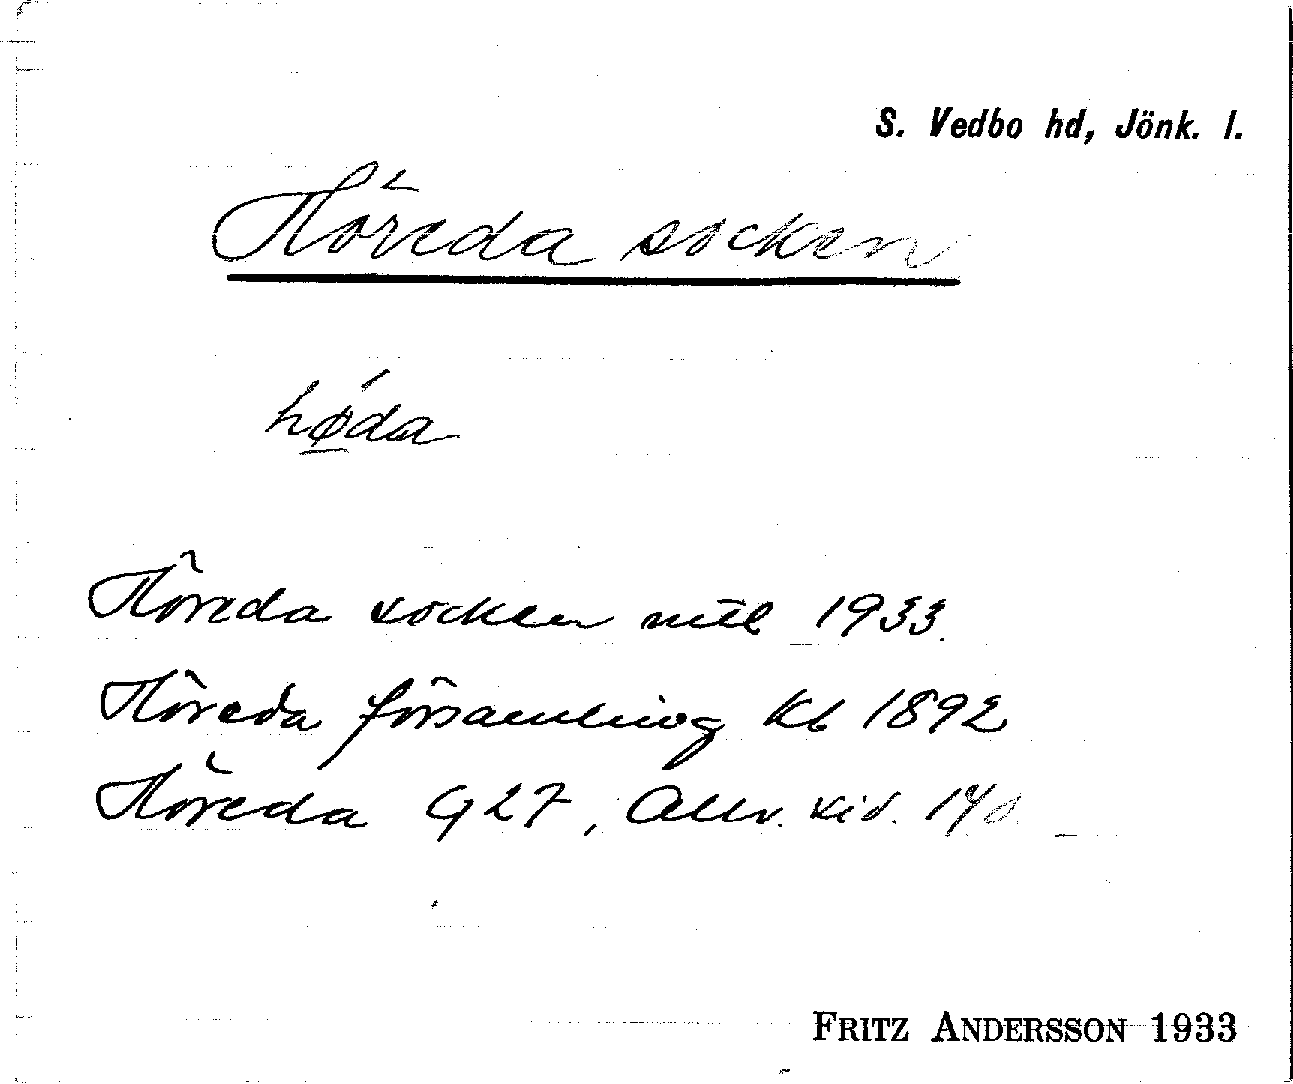 S. Vedbo hd, Jönk. l.
Höreda socken
hǿ̱da
Höreda socken mtl 1933.
Höreda församling Kb 1892
Höreda G 27, Allv. sid.
FRITZ ANDERSSON 1933